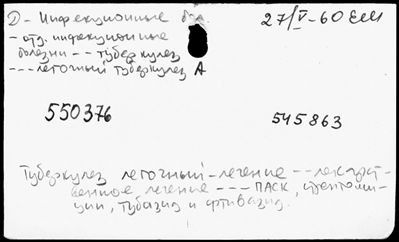 D - Инфекционные бол.
27/V-60 ЕМ
- отд. инфекционные
болезни -- туберкулез
--- легочный туберкулез А
550376
545863
Туберкулез легочный - лечение -- лекарст-
венное лечение --- ПАСК, стептоми-
цин, тубазид и фтивазид.